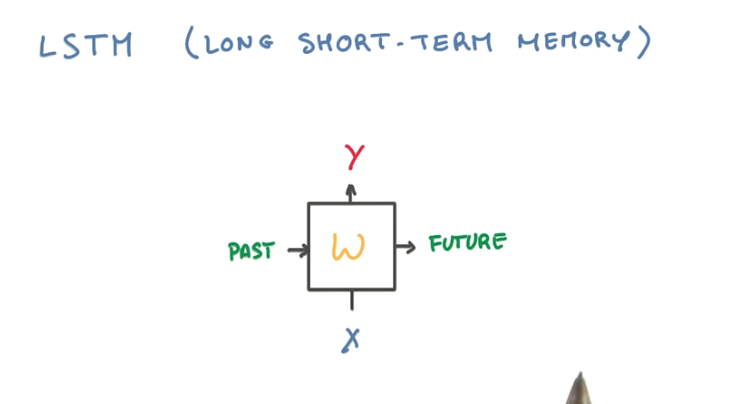 LSTM (LONG SHORT-TERM MEMORY)
Y
PAST W FUTURE
X